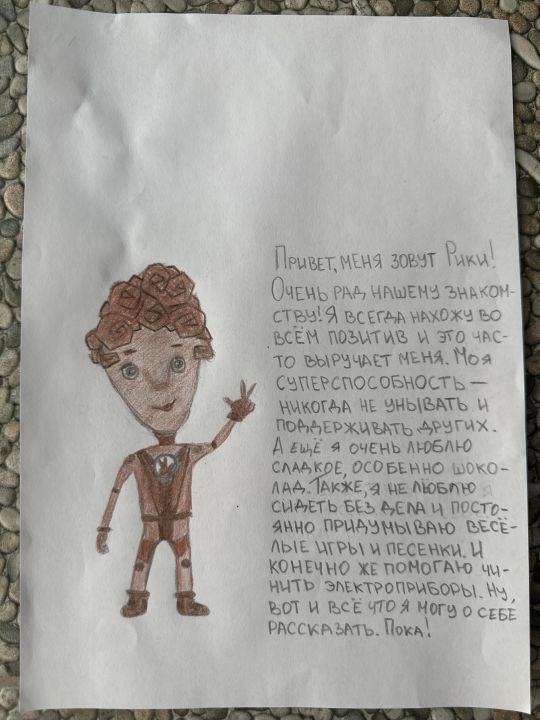 Привет, меня зовут Рики!
Очень рад нашему знаком-
ству! Я всегда нахожу во
всём позитив и это час-
то выручает меня. Моя
суперспособность —
никогда не унывать и
поддерживать других.
А ещё я очень люблю
сладкое, особенно шоко-
лад. Также, я не люблю
сидеть без дела и посто-
янно придумываю весё-
лые игры и песенки. И
конечно же помогаю чи-
нить электроприборы. Ну,
вот и всё что я могу о себе
рассказать. Пока!